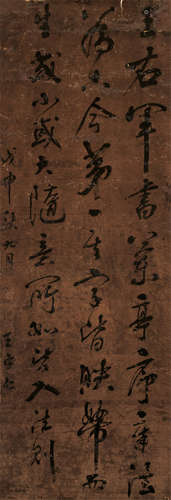 王右軍書蘭亭序章法
為古今第一其字皆映帶而
生或小或大隨意所如皆入法則
戊申秋九月 王